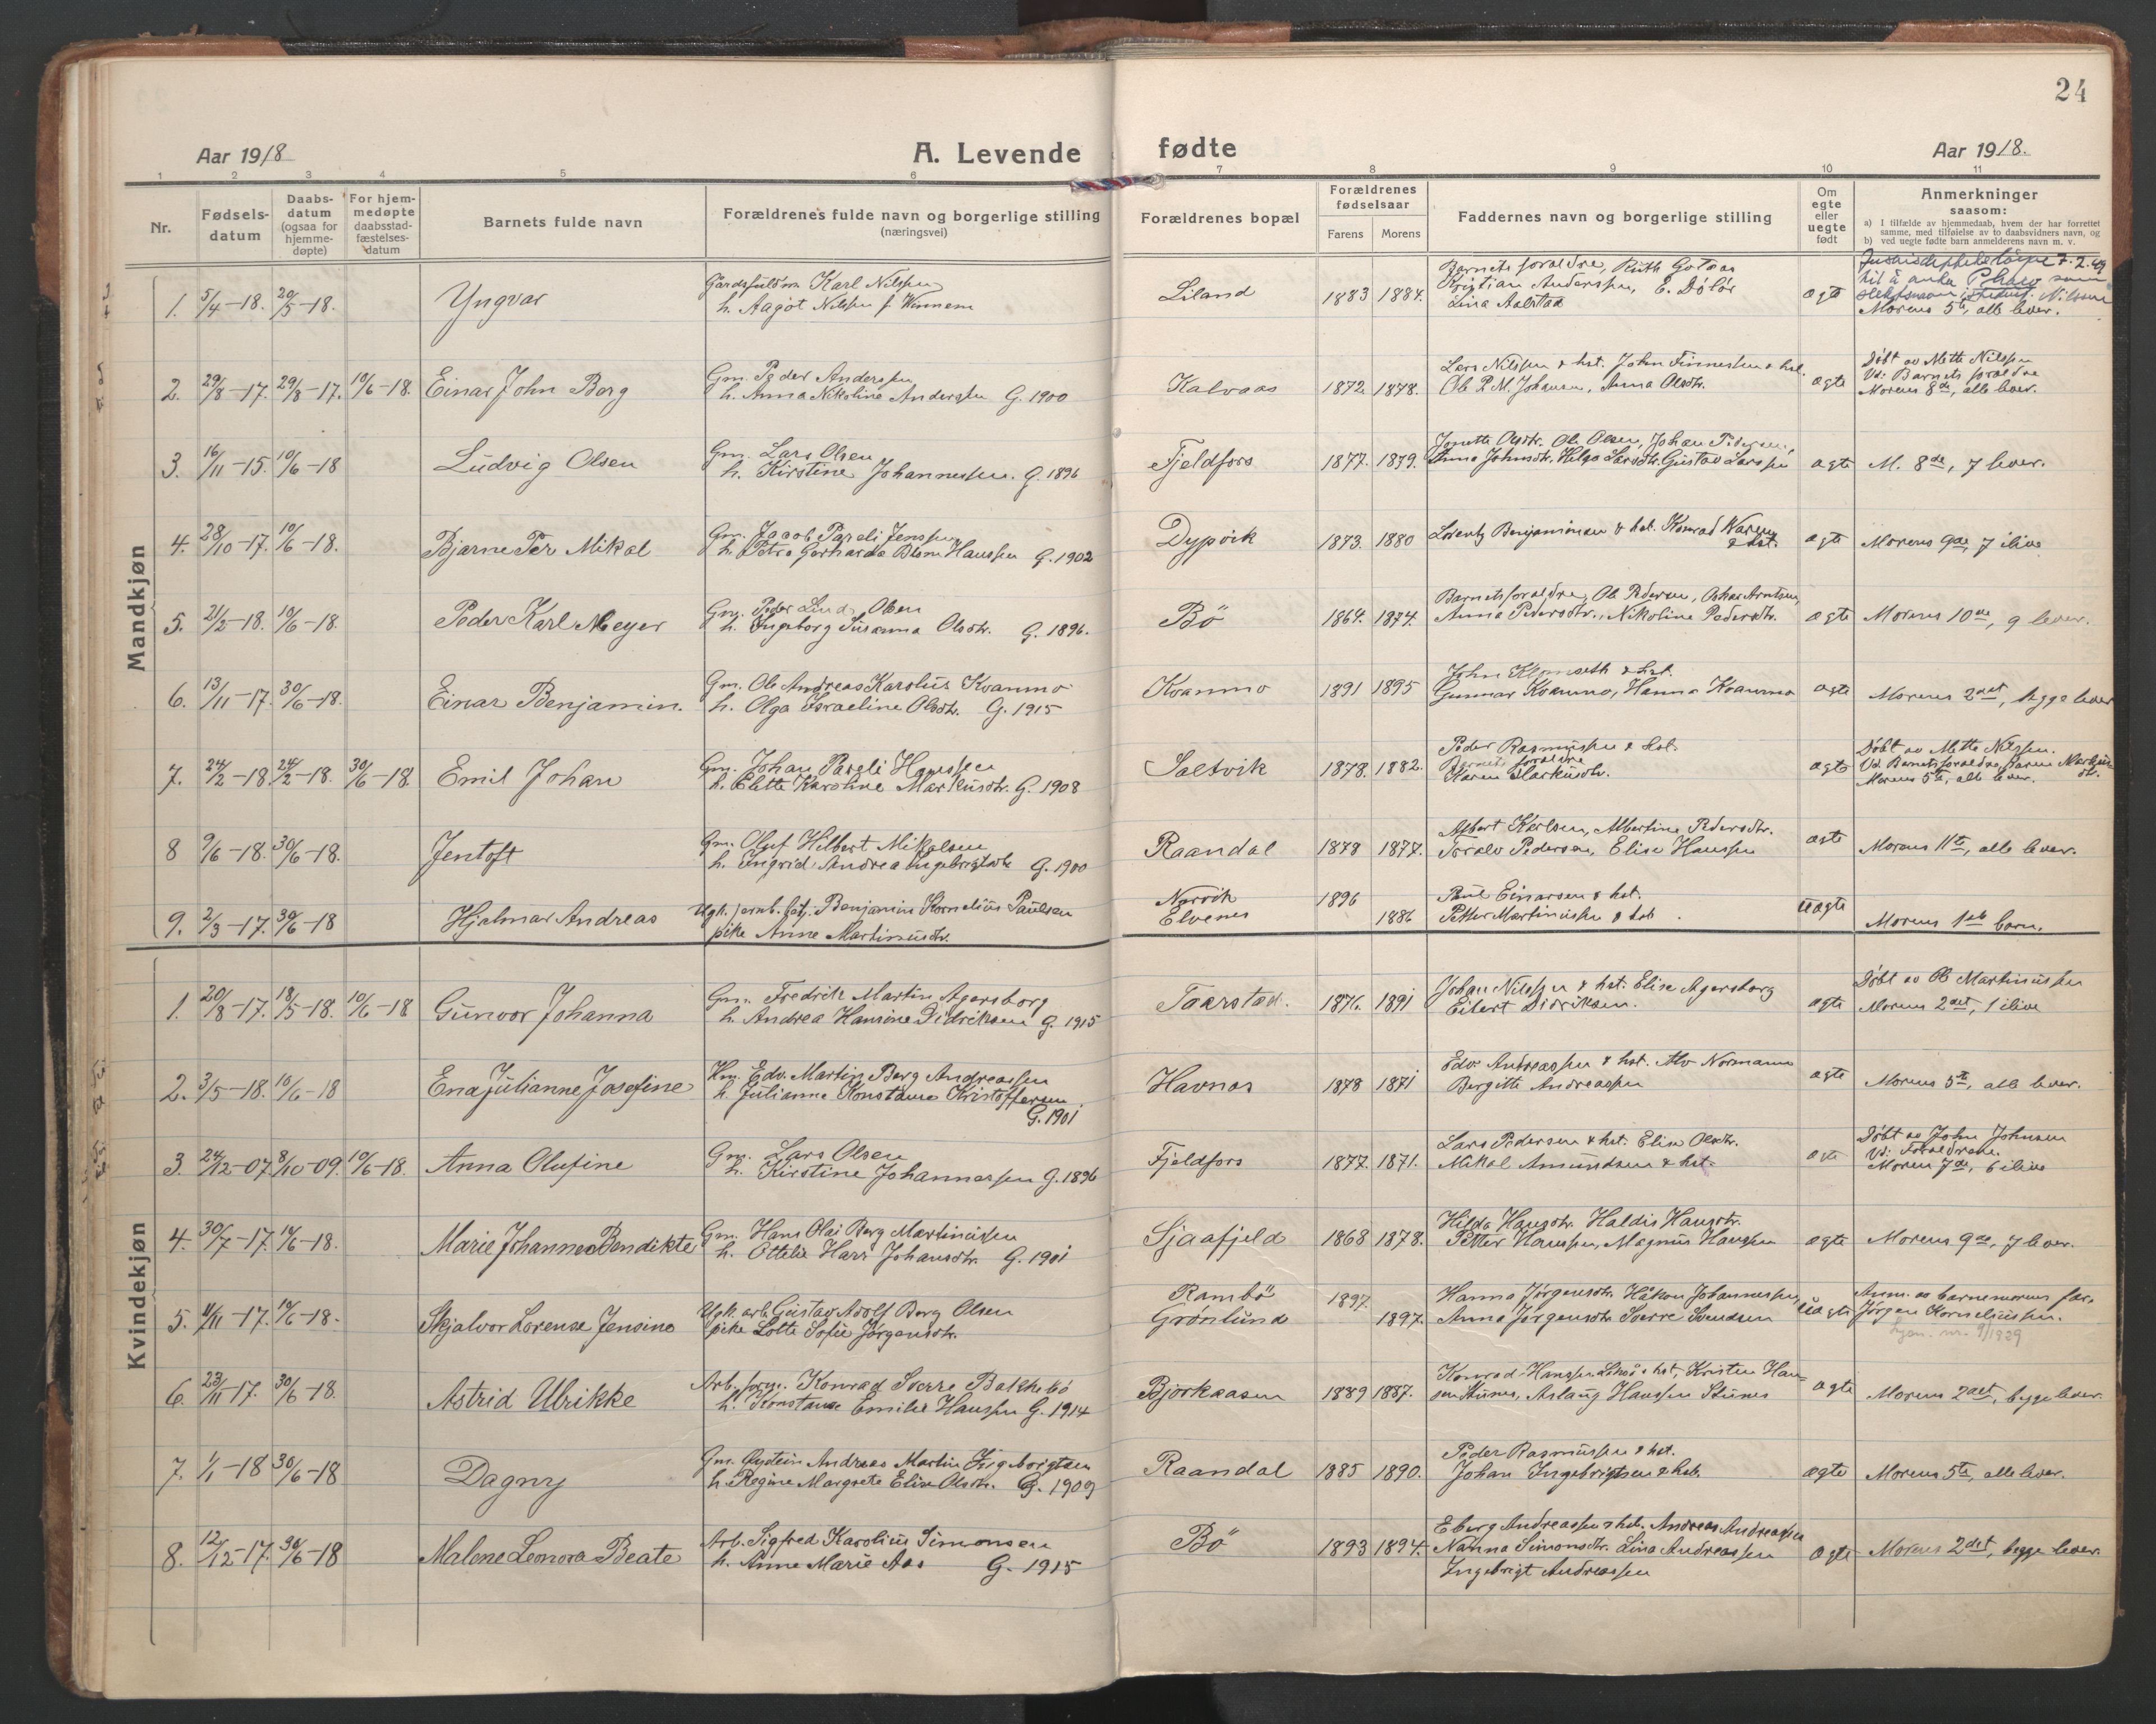 24
Aar 1918
A. Levende
fødte
Aar 1918.
1 2 3 4 5 6 7 8 9 10 11
Nr.
Fødsels-
datum
Daabs-
datum
(ogsaa for
hjemme-
døpte)
For hjem-
medøpte
daabsstad-
fæstelses-
datum
Barnets fulde navn
Forældrenes fulde navn og borgerlige stilling
(næringsvei)
Forældrenes bopæl
Forældrenes
fødselsaar
Farens Morens
Faddernes navn og borgerlige stilling
Om
egte
eller
uegte
født
Anmerkninger
saasom:
a) I tilfælde av hjemmedaab, hvem der har forrettet
samme, med tilføielse av to daabsvidners navn, og
b) ved uegte fødte barn anmelderens navn m. v.
Mandkjøn
1. 5/4-18. 20/5-18. Yngvar
Karl Nilssen
h. Aagot Nilssen f. Winnem
Liland 1883 1884.
Barnets foraldre, Ruth Gotaas
Kristian Anderssen, E. Dölör
Lina Aalstad
ægte
7.2.49
til å anta
Nilssen
Morens 5te, alle lever.
2. 29/8-17. 29/8-17. 10/6-18. Einar John Berg
Gm. Peder Anderssen
h. Anna Nikoline Anderssen G. 1900
Kalvaas 1872. 1878.
Lars Nilssen & hst. John Finnessen & hst.
Ole P. M. Johansen, Anna Olsdtr.
ægte
Döbt av Mette Nilssen
Vd: Barnets foraldre
Morens 8de, alle lever.
3. 16/11-15. 10/6-18 Ludvig Olsen
Gm. Lars Olsen
h. Kirstine Johannessen. G. 1896
Fjeldfors 1877. 1879.
Jonette Olsdtr. Ole Olsen, Johan Pedersen,
Anna Johnsdtr. Helga Larsdtr. Gustav Larssen
ægte M. 8de, 7 lever.
4. 28/10-17. 10/6-18. Bjarne Per Mikal
Gm. Jacob Pareli Jenssen
h. Petra Gerharda Blom Hanssen G. 1902
Dypvik 1873. 1880
Lorentz Benjaminsen & hst. Konrad
& hst.
ægte Morens 9de, 7 ilive
5. 21/2-18. 10/6-18. Peder Karl Meyer
Gm. Peder Lind Olsen
h. Ingeborg Susanna Olsdtr. G. 1896.
Bö 1864. 1874.
Barnets foraldre, Ole Pedersen, Oskar Arntsen,
Anna Pedersdtr., Nikoline Pedersdtr.
ægte Morens 10de, 9 lever.
6. 13/11-17. 30/6-18. Einar Benjamin.
Gm. Ole Andreas Karolius Kvanmo
h. Olga Israeline Olsdtr. G. 1915
Kvanmo 1891 1895
John & hst.
Gunnar Kvanmo, Hanna Kvanmo
ægte Morens 2det, begge lever
7. 24/2-18. 24/2-18. 30/6-18. Emil Johan
Gm. Johan Pareli Hanssen
h. Elette Karoline Markusdtr. G. 1908
Saltvik 1878. 1882.
Peder Rasmussen & hst.
Barnets foraldre
Karen Markusdtr.
ægte
Döbt av Mette Nilssen.
Vd. Barnets foraldre, Karen Markus-
dtr.
Morens 5te, alle lever.
8 9/6-18. 30/6-18. Jentoft
Gm. Oluf Hilbert Mikalsen
h. Ingrid Andrea Ingebrigtsdtr G. 1900
Raandal 1878 1877.
Albert Karlsen, Albertine Pedersdtr.
Toralv Pedersen, Elise Hanssen
ægte Morens 11te, alle lever.
9. 2/3-17. 30/6-18 Hjalmar Andreas
Ugk. jernb. Benjamin Kornelius Paulsen
pike Anne Martinusdtr.
Narvik 1896
Elvenes 1886
Paul Einarsen & hst.
Petter Martinussen & hst.
uægte
Morens 1ste barn.
Kvindekjøn
1. 20/8-17. 18/5-18. 10/6-18 Gunvor Johanna
Gm. Fredrik Martin Agersborg
h. Andrea Hansine Didriksen G. 1915
Taarstad. 1876. 1891
Johan Nilssen & hst. Elise Agersborg
Eilert Didriksen.
ægte
Döbt av Ole Martinussen
Morens 2det, 1 ilive
2. 3/5-18. 10/6-18 Ena Julianne Josefine
Hm. Edv. Martin Berg Andreassen
h. Julianna Konstanse Kristoffersen
G. 1901
Havnas 1878 1871
Edv. Andreassen & hst. Alv Normann
Bergitte Andreassen
ægte Morens 5te, alle lever.
3. 24/12-07. 8/10-09. 10/6-18. Anna Olufine
Gm. Lars Olsen
h. Kirstine Johannessen G. 1896
Fjeldfors 1877. 1871.
Lars Pedersen & hst. Elise Olsdtr.
Mikal Amundsen & hst.
ægte
Döbt av John Johnsen
Vd: Foraldrene.
Morens 7de, 6 ilive
4. 30/7-17. 10/6-18. Marie Johanne Bendikte
Gm. Hans Olai Berg Martinussen
h. Ottelie Hars Johansdtr. G. 1901
Sjaafjeld 1868 1878.
Hilda Hansdtr. Haldis Hansdtr.
Petter Hanssen, Magnus Hanssen
ægte Morens 9de, 7 lever.
5. 11/11-17. 10/6-18. Skjalvor Lorense Jensine
Ugk. arb. Gustav Adolf Berg Olsen
pike Lotte Sofie Jörgensdtr.
Rambö 1897.
Grönlund 1897.
Hanna Jörgensdtr. Håkon Johannessen,
Anna Jörgensdtr. Sverre Svendsen
uægte
Anm. av barnemorens far.
Jörgen Korneliussen.
nr. 9/1829
6. 23/11-17. 30/6-18. Astrid Ulrikke
Arb. form. Konrad Sverre Bakkebö
h. Konstanse Emilie Hanssen G. 1914
Bjorkaasen 1889 1887.
Konrad Hanssen & hst, Kristen Han-
sen Stunes, Aslaug Hanssen Stunes
ægte Morens 2det, begge lever.
7. 1/1-18 30/6-18 Dagny
Gm. Øystein Andreas Martin Ingebrigtsen
h. Regine Margrete Elise Olsdtr. G. 1909
Raandal 1885 1890.
Peder Rasmussen & hst.
Johan Ingebrigtsen & hst.
ægte Morens 5te, alle lever.
8. 12/12-17. 30/6-18 Malene Leonora Beate
Arb. Sigfred Karolius Simonsen
h. Anne Marie Aas G. 1915
Bö 1893 1894.
Eberg Andreassen & hst. Andreas Andreassen
Nanna Simonsdtr. Lina Andreassen
Ingebrigt Andreassen
ægte Morens 2det, begge lever.